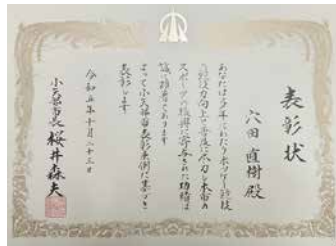 表彰状
穴田直樹殿
あなたは多年にわたりホッケー競技
の競技力向上と普及に尽力し本市の
スポーツの振興に寄与された功績は
誠に顕著であります
よって小矢部市表彰条例に基づき
表彰します
令和五年十月二十三日
小矢部市長 桜井森夫